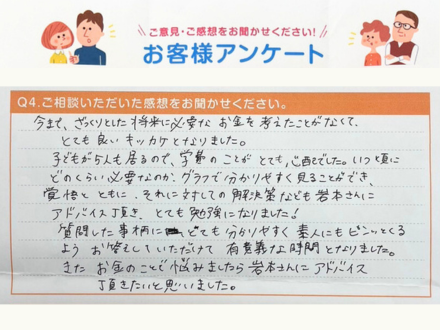 ご意見・ご感想をお聞かせください!
お客様アンケート
Q4.ご相談いただいた感想をお聞かせください。
今まで、ざっくりとした将来に必要なお金を考えたことがなくて、
とても良いキッカケとなりました。
子どもが5人も居るので、学費のことがとても心配でした。いつ頃に
どのくらい必要なのか、グラフで分かりやすく見ることができ、
覚悟とともに、それに対しての解決策なども岩本さんに
アドバイス頂き、とても勉強になりました!
質問した事柄にとても分かりやすく素人にもピンッとくる
よう お答えしていただけて 有意義な時間となりました。
また お金のことで悩みましたら岩本さんに アドバイス
頂きたいと思いました。